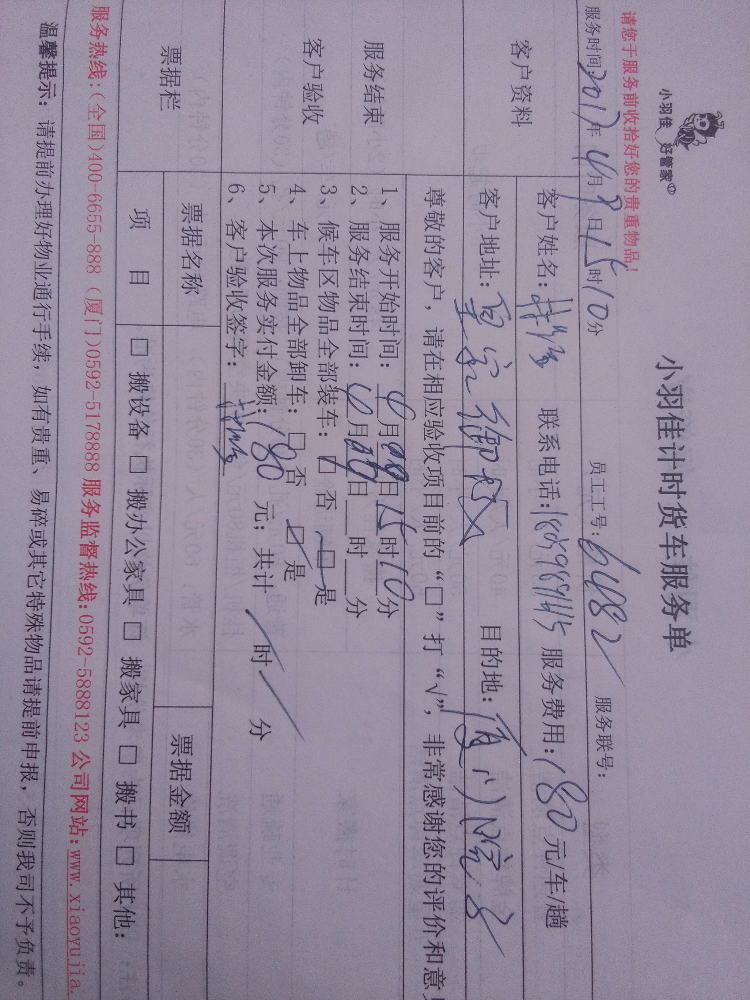 小羽佳 好管家
小羽佳计时货车服务单
请您于服务前收拾好您的贵重物品！
服务时间 2017年4月9日15时10分 员工工号：6482 服务联号：
客户资料
客户姓名： 联系电话： 服务费用：180元/车/趟
客户地址： 目的地：
尊敬的客户，请在相应验收项目前的“□”打“√”，非常感谢您的评价和意
服务结束
客户验收
1、服务开始时间：4月09日15时10分
2、服务结束时间：4月09日__时__分
3、候车区物品全部装车：□ 否 □ 是
4、车上物品全部卸车：□ 否 □ 是
5、本次服务实付金额：180 元；共计 / 时 / 分
6、客户验收签字：
票据栏
票据名称 票据金额
项 目 □ 搬设备 □ 搬办公家具 □ 搬家具 □ 搬书 □ 其他：
服务热线：(全国)400-6655-888（厦门)0592-5178888 服务监督热线：0592-5888123 公司网站：www.xiaoyujia.
温馨提示：请提前办理好物业通行手续，如有贵重、易碎或其它特殊物品请提前申报，否则我司不予负责。